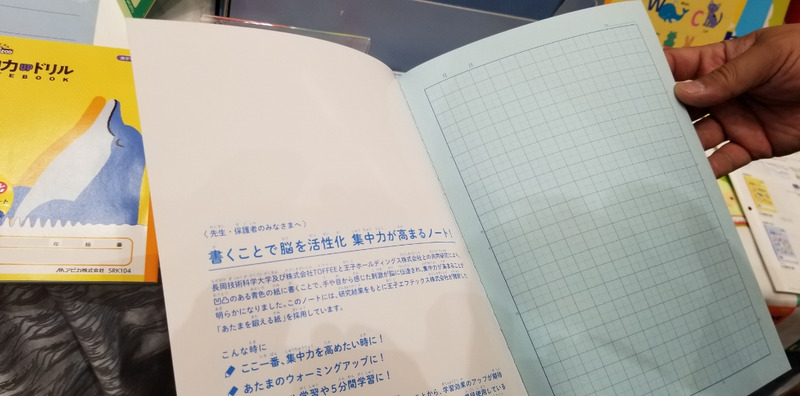 力UPドリル
NOTEBOOK
年 組 番
アピカ株式会社 SRK104
月 日
〈先生・保護者のみなさまへ〉
書くことで脳を活性化 集中力が高まるノート!
長岡技術科学大学及び株式会社TOFFEEと王子ホールディングス株式会社との共同研究により、
凹凸のある青色の紙に書くことで、手や目から感じた刺激が脳に伝達され、集中力が高まることが
明らかになりました。このノートには、研究結果をもとに王子エフテックス株式会社が開発した
「あたまを鍛える紙」を採用しています。
こんな時に
ここ一番、集中力を高めたい時に!
あたまのウォーミングアップに!
学習や5分間学習に!
とから、学習効果のアップが期待